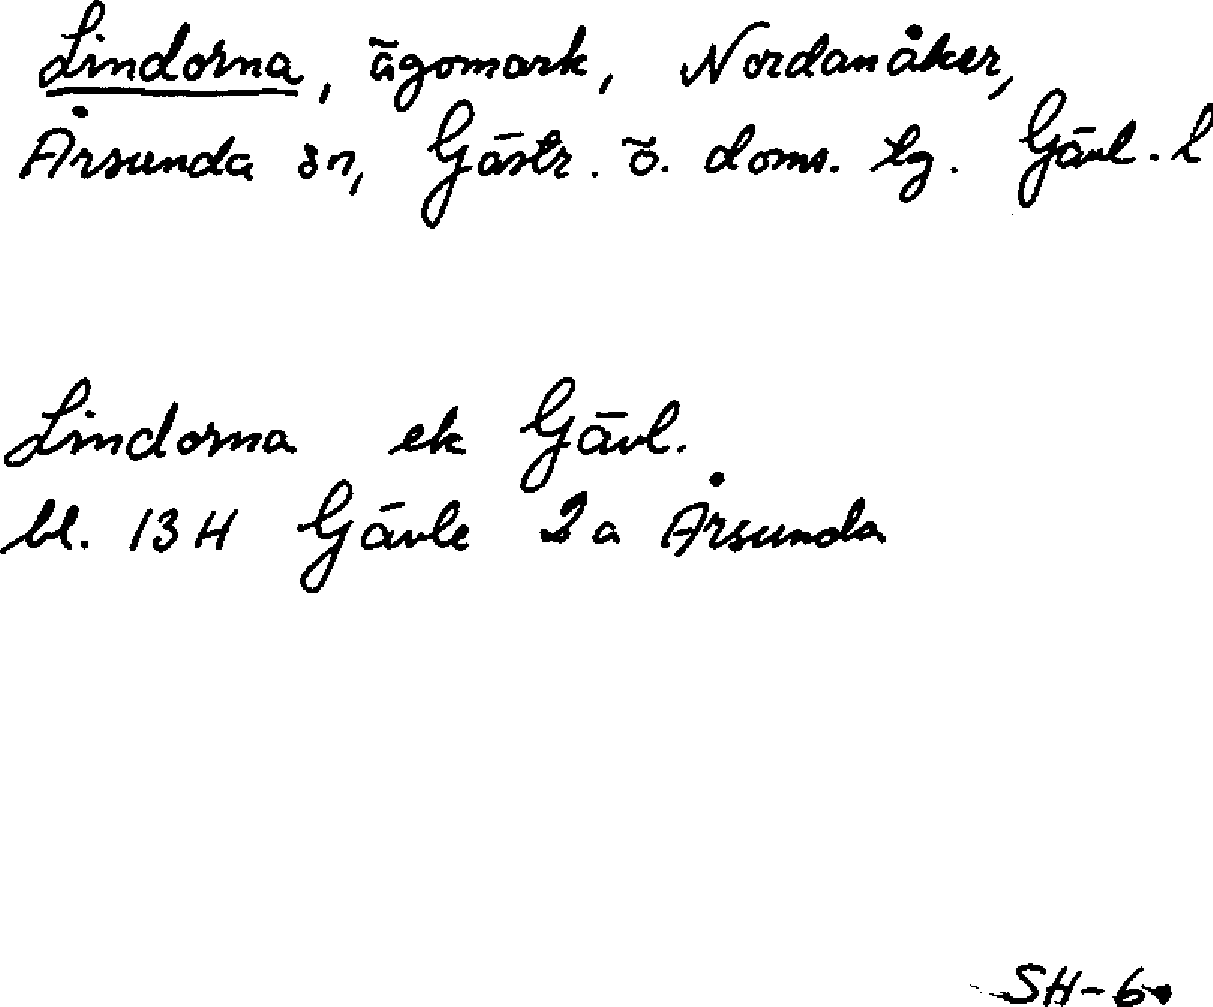 Lindorna, ägomark, Nordanåker,
Årsunda sn, Gästr. ö. doms. tg. Gävl. l
Lindorna ek Gävl.
bl. 13 H Gävle 2a Årsunda